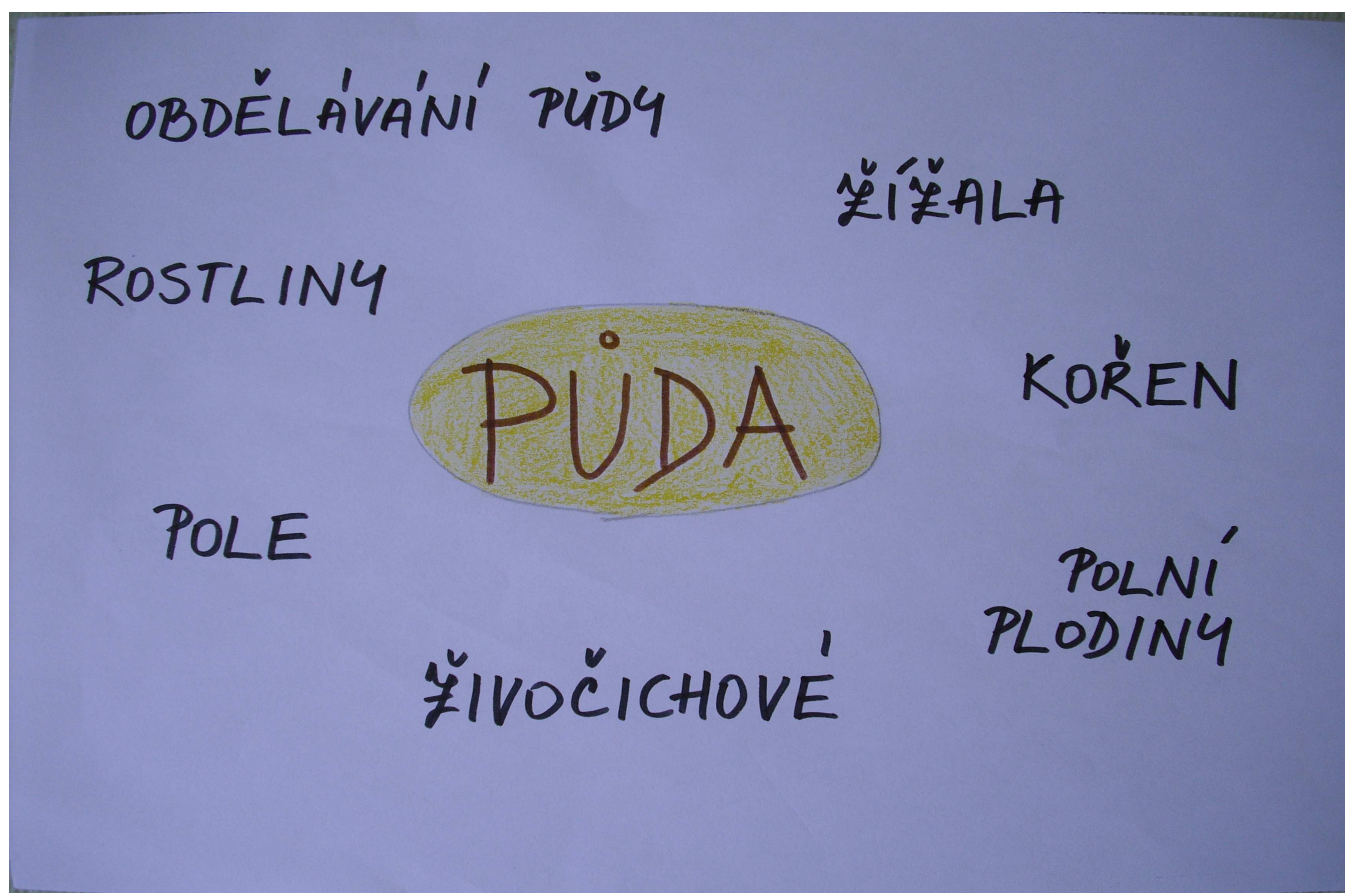 OBDĚLÁVÁNÍ PŮDY
ŽÍŽALA
ROSTLINY
PŮDA
KOŘEN
POLE
POLNÍ
PLODINY
ŽIVOČICHOVÉ